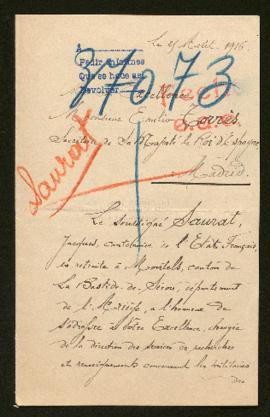 Le 25 Août 1916.
A
Pedir informes
Que se hace así
Devolver
37073
Excellence
Monsieur Emilio Torrès,
Secrétaire de Sa Majesté le Roi d'Espagne
Madrid
Saurat
Le soussigné Saurat,
Jacques, cantonnier de l'Etat Français,
en retraite à Montels, canton de
La Bastide-de-Sérou, département
de l'Ariège, a l'honneur de
s'adresser à Votre Excellence, chargée
de la direction des services de recherches
et renseignements concernant les militaires
des